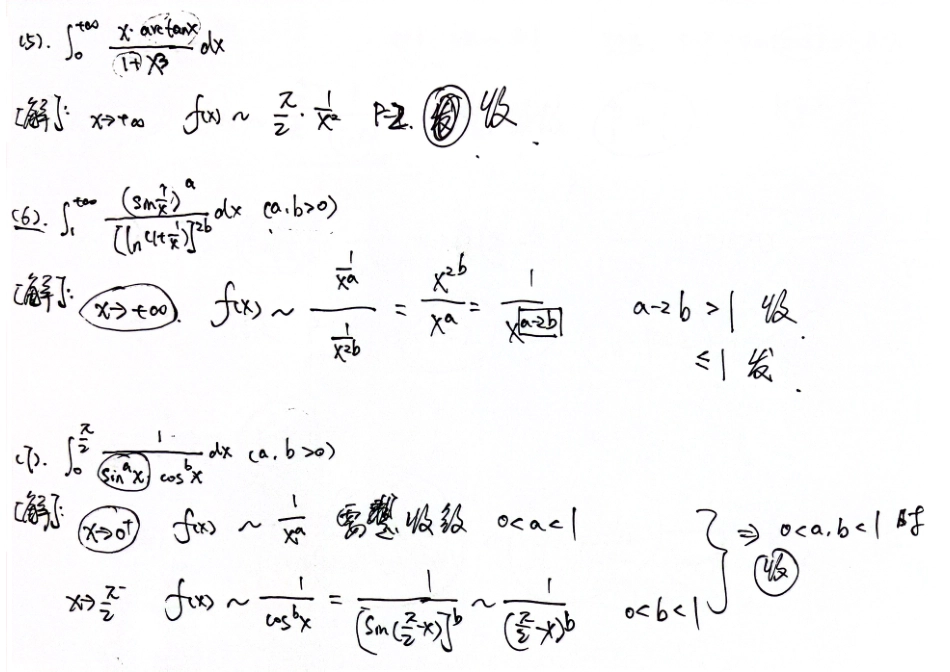 (5). ∫₀^{+∞} \frac{x·arctanx}{1+x³} dx
[解]: x→+∞ f(x) ~ \frac{π}{2}·\frac{1}{x²} P=2. 收.
(6). ∫₁^{+∞} \frac{(sin\frac{1}{x})^a}{[ln(1+\frac{1}{x})]^{2b}} dx (a,b>0)
[解]: x→+∞. f(x) ~ \frac{\frac{1}{x^a}}{\frac{1}{x^{2b}}} = \frac{x^{2b}}{x^a} = \frac{1}{x^{a-2b}} a-2b >1 收
≤1 发.
(7). ∫₀^{\frac{π}{2}} \frac{1}{sin^a x cos^b x} dx (a,b>0)
[解]: x→0⁺ f(x) ~ \frac{1}{x^a} 需 收敛 0<a<1
x→\frac{π}{2}⁻ f(x) ~ \frac{1}{cos^b x} = \frac{1}{[sin(\frac{π}{2}-x)]^b} ~ \frac{1}{(\frac{π}{2}-x)^b} 0<b<1
} ⇒ 0<a,b<1 时
收